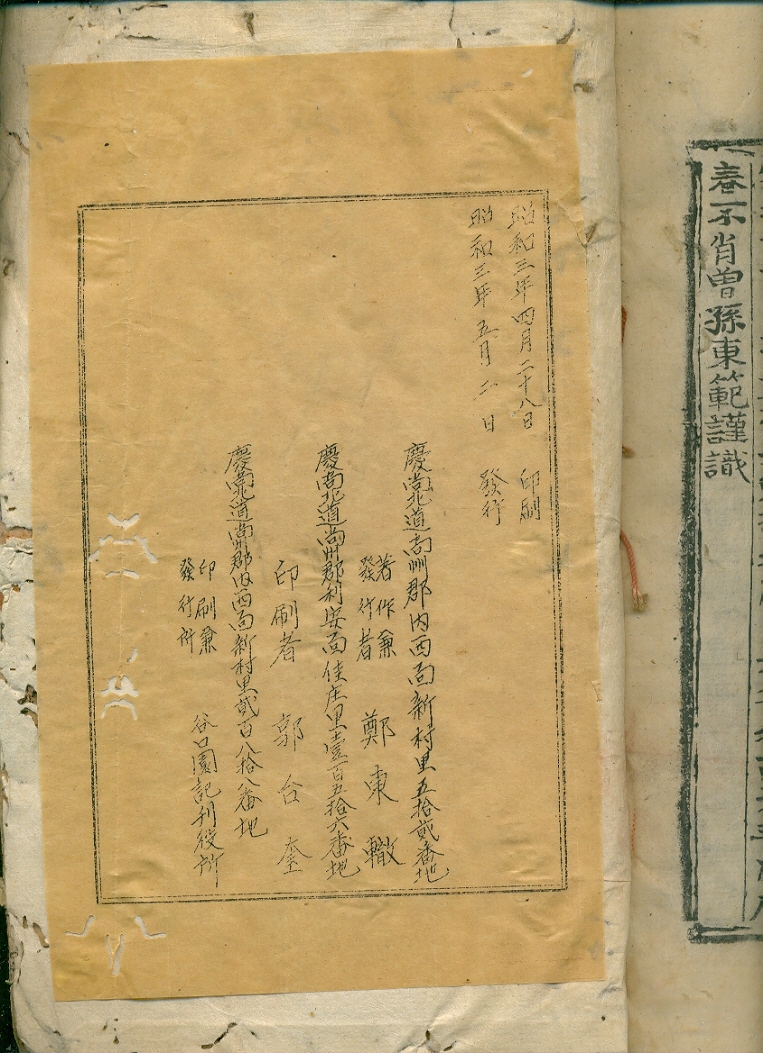 春一不肖曾孫東範謹識
昭和三年四月二十八日 印刷
昭和三年五月二日 發行
慶尙北道尙州郡內西面新村里五拾貳番地
著作兼
發行者 鄭東轍
慶尙北道尙州郡利安面佳庄里壹百五拾六番地
印刷者 郭台奎
慶尙北道尙州郡內西面新村里貳百八拾八番地
印刷兼
發行所 谷口園記刊役所